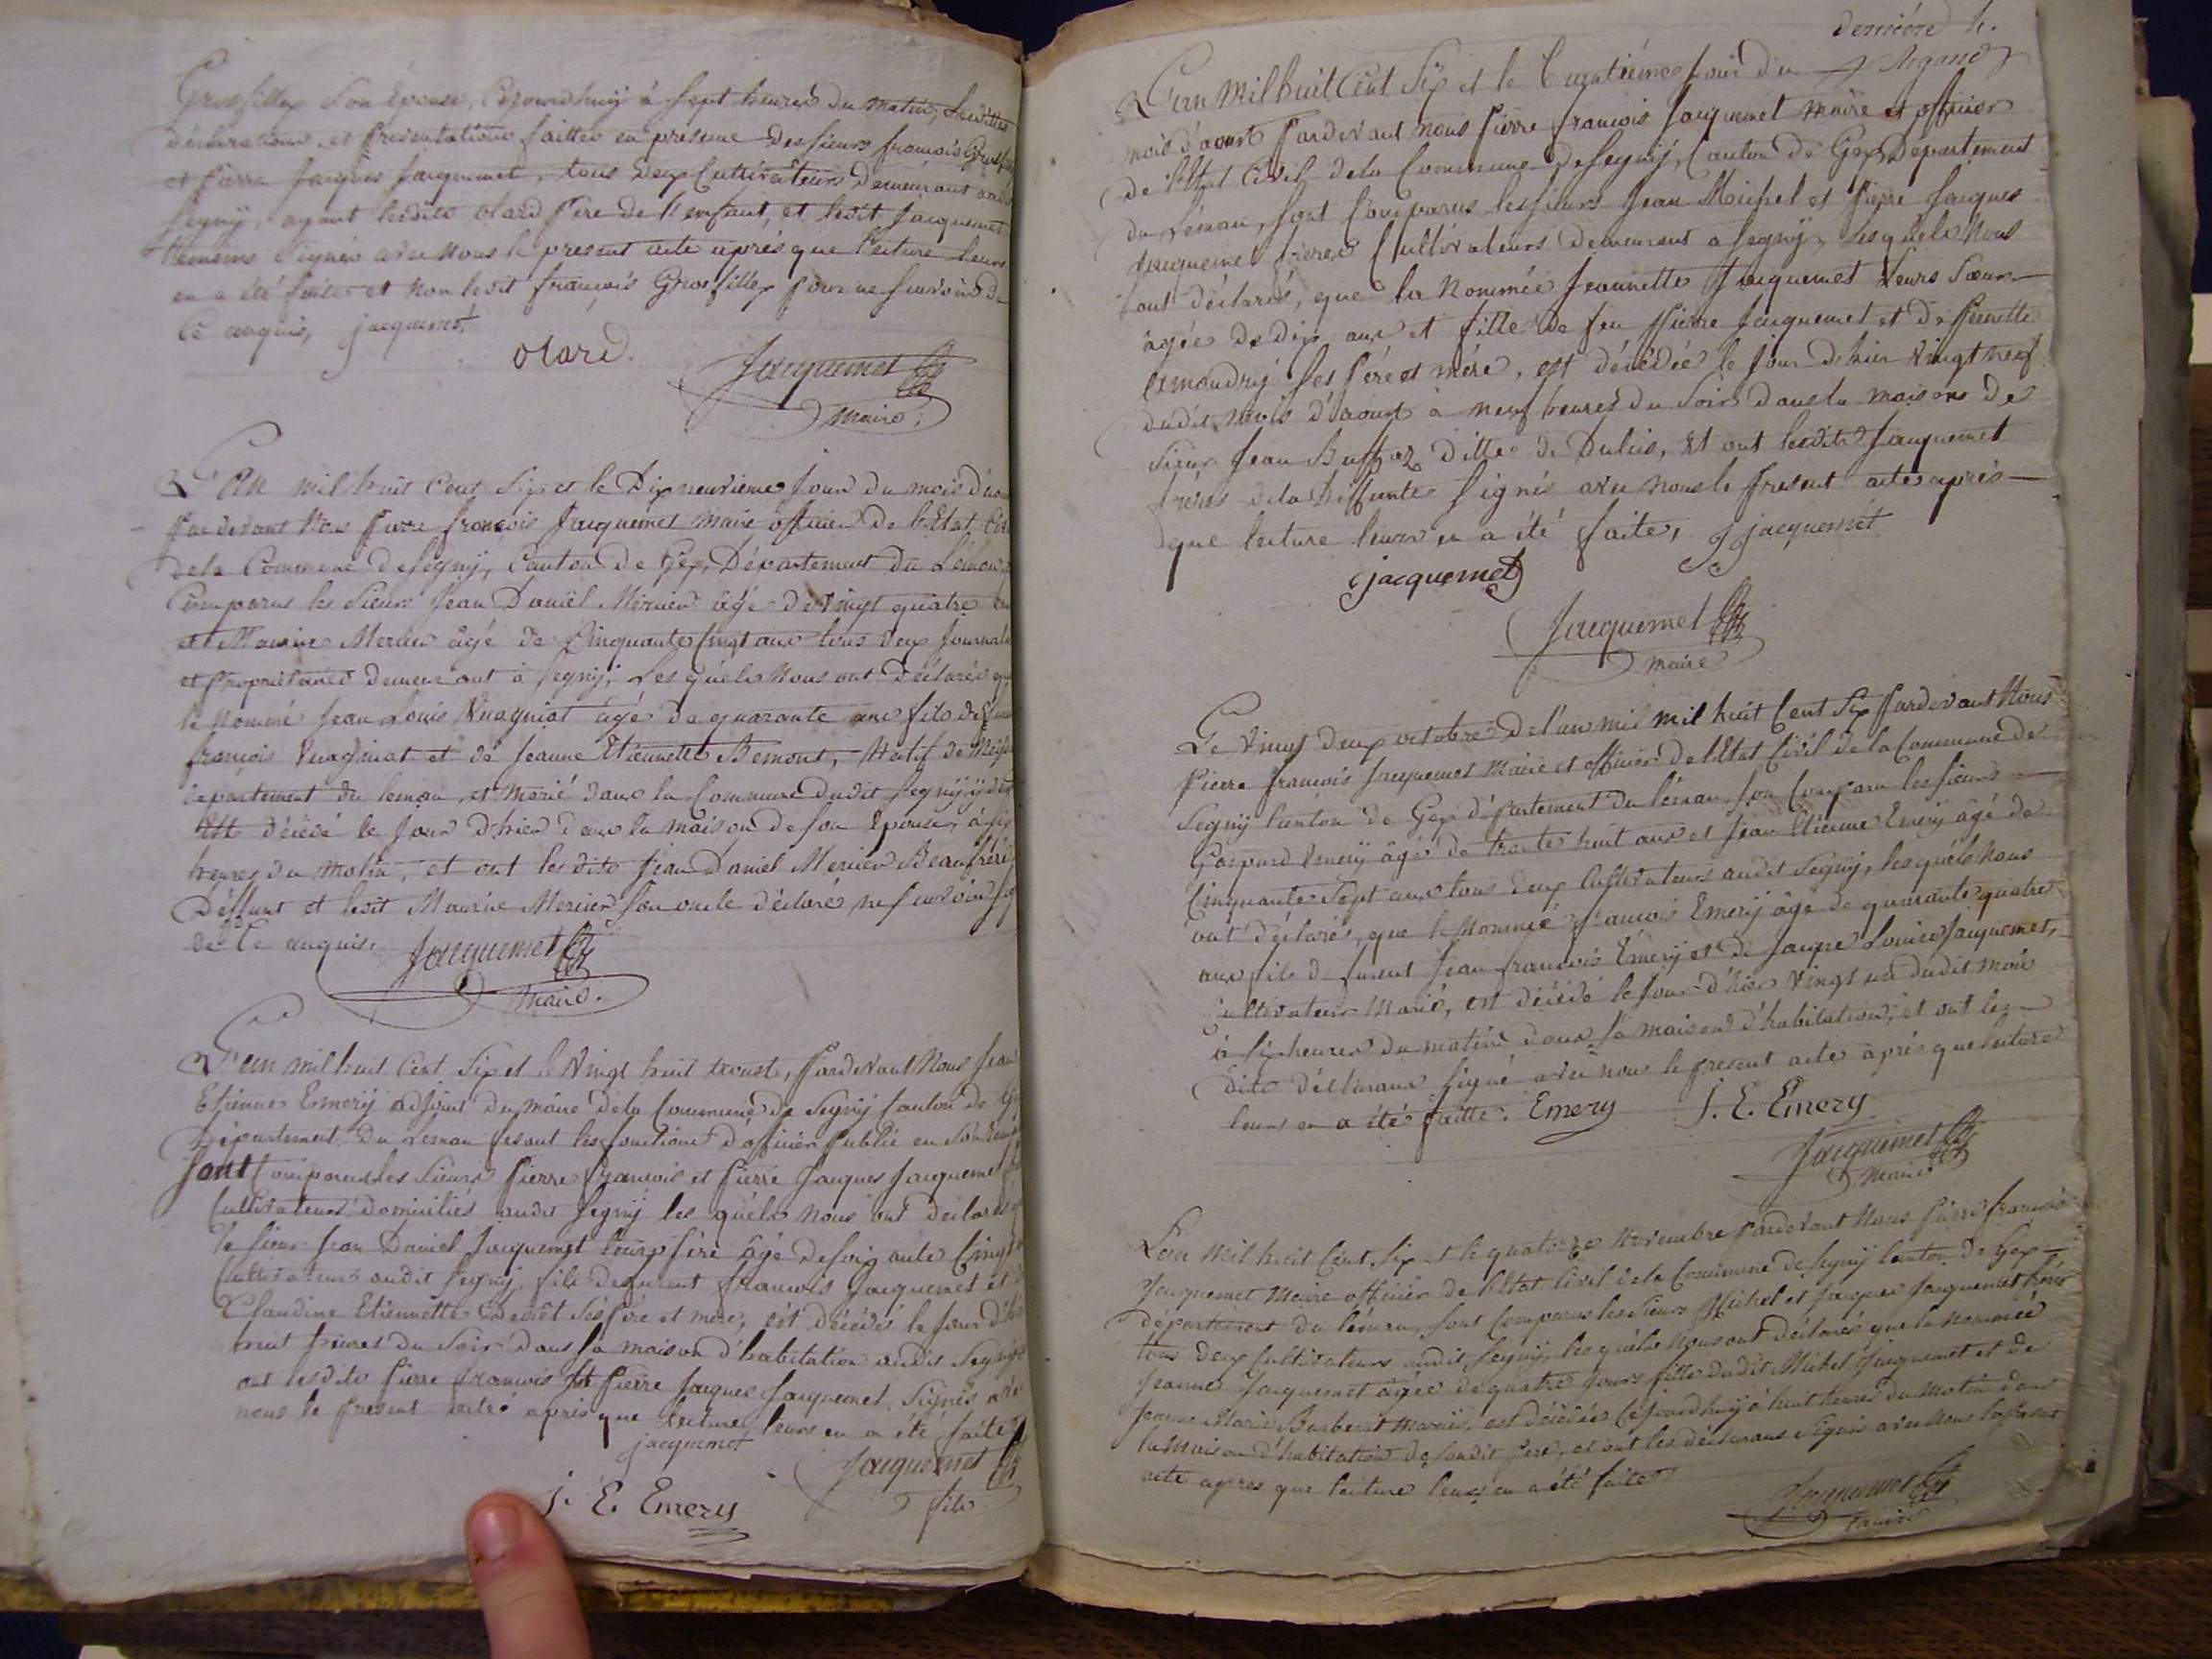 Grosfillex son Epouse, Cejourdhuij à sept heures du matin, lesdittes
déclaration et présentation faittes en présence des sieurs françois
et Pierre Jacques Jacquemet, tous deux Cultivateurs demeurant
Segnÿ, ayant lesdits olard Père de l'enfant, et ledit Jacquemet
temoins Signés avec nous le présent acte après que lecture leurs
en a été faite et non ledit françois Grosfillex pour ne savoir
Ce enquis, jacquemet
olard.
Jacquemet
Maire.
L'an mil huit Cent Six et le Dix neuvieme jour du mois d'
Par devant Nous Pierre françois Jacquemet Maire officier de l'Etat
dela Commune de Segnÿ, Canton de Gex, Département du Léman
Comparus les Sieurs Jean Daniel Mercier âgé de Vingt quatre
et Maurice Mercier âgé de Cinquante Cinq ans tous deux
et Propriétaires demeurant à Segnÿ, Lesquels Nous ont Déclarés
le Nommé Jean Louis Vuagniat âgé de quarante ans fils de
françois Vuagniat et de Jeanne Etiennette Bemont, Natif de
département du leman, et Marié dans la Commune dudit Segnÿ
Est décédé le Jour d'hier dans la maison de son Epouse, à six
heures du matin, et ont lesdits Jean Daniel Mercier Beaufrère
Déffunt et ledit Maurice Mercier son oncle déclaré ne savoir
de Ce enquis. Jacquemet
Maire.
L'an mil huit Cent Six et le Vingt huit aoust, Pardevant Nous Jean
Etienne Emerÿ adjoint du maire dela Commune de Segnÿ Canton de
Département du Leman fesant les fonctions d'officier Public en
Sont Comparus les Sieurs Pierre François et Pierre Jacques Jacquemet
Cultivateurs domiciliés audit Segnÿ les quels Nous ont déclarés
le sieur Jean Daniel Jacquemet leurs Père âgé de soixante Cinq
Cultivateur audit Segnÿ, fils de françois Jacquemet et
Claudine Etiennette ses Père et mère, est décédé le Jour
huit heures du Soir dans sa maison d'habitation audit Segnÿ
ont lesdits Pierre François et Pierre Jacques Jacquemet, Signés avec
nous le present acte après que lecture leurs en a été faite
jacquemet
Jacquemet
fils.
J. E. Emery
dernière h.
L'an Mil huit Cent Six et le trentième jour du
mois d'aoust Pardevant nous Pierre françois Jacquemet maire et officier
de l'Etat Civil dela Commune de Segnÿ, Canton de Gex, Département
du Léman, sont Comparus les sieurs Jean Michel et Pierre Jacques
Jacquemet frères Cultivateurs demeurant a Segnÿ, lesquels Nous
ont déclarés, que la Nommée Jeannette Jacquemet leurs Sœur
âgée de dix ans et fille de feu Pierre Jacquemet et de Pernette
Emoudry ses Père et mère, est décédée le Jour d'hier Vingt neuf
dudit mois d'aoust à neuf heures du Soir dans la maison de
Sieur Jean ditte de Et ont lesdits Jacquemet
frères dela Deffunte Signés avec nous le Présent acte après
que lecture leurs en a été faite, jacquemet
jacquemet
Jacquemet
maire
Le Vingt deux octobre del'an mil mil huit Cent Six Pardevant Nous
Pierre François Jacquemet Maire et officier del'Etat Civil de la Commune de
Segnÿ Canton de Gex département du léman son Comparu les sieurs
Gaspard Emerÿ âgé de trente huit ans et Jean Etienne Emerÿ âgé de
Cinquante Sept ans tous deux Cultivateurs audit Segnÿ, lesquels Nous
ont déclarés, que le Nommé François Emerÿ âgé de quarante quatre
ans fils de Jean François Emerÿ et de Louise Jacquemet,
Cultivateur Marié, est décédé le Jour d'hier Vingt un dudit mois
à six heures du matin dans sa maison d'habitation, et ont les
dits déclarans Signé avec nous le present acte après que lecture
leurs en a été faitte. Emery J. E. Emery
Jacquemet
Maire
L'an Mil huit Cent Six et le quatorze Novembre Pardevant Nous Pierre François
Jacquemet Maire officier de l'Etat Civil dela Commune de Segnÿ Canton de Gex
département du léman, sont Comparus les Sieurs Michel et Jacques Jacquemet frères
tous deux Cultivateurs audit Segnÿ, les quels Nous ont déclarés que la nommée
Jeanne Jacquemet âgée de quatre Jours fille dudit Michel Jacquemet et de
Jeanne Marie mariés, est décédée Cejourdhuÿ à huit heures du Matin dans
la Maison d'habitation de sondit Père, et ont les déclarans Signés avec nous le présent
acte apres que lecture leurs en a été faite
Jacquemet
Maire